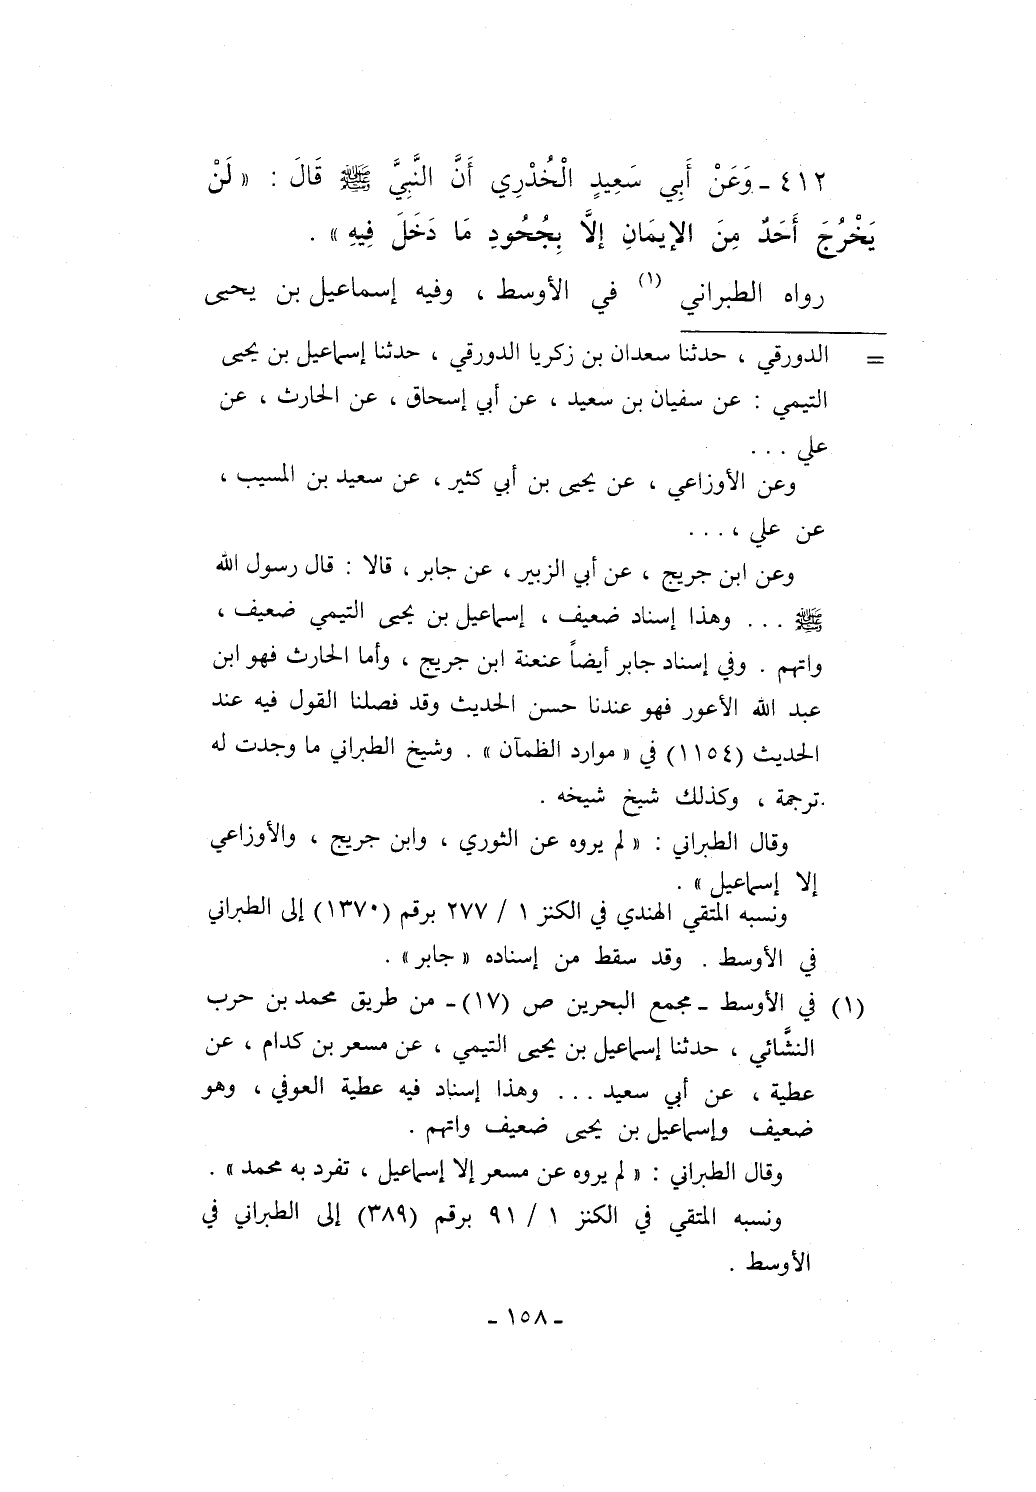 ٤١٢ ـ وَعَنْ أَبِي سَعِيدٍ الْخُدْرِي أَنَّ النَّبِيَّ ﷺ قَالَ : « لَنْ
يَخْرُجَ أَحَدٌ مِنَ الإيمَانِ إلاَّ بِجُحُودِ مَا دَخَلَ فِيهِ » .
رواه الطبراني (١) في الأوسط ، وفيه إسماعيل بن يحيى
= الدورقي ، حدثنا سعدان بن زكريا الدورقي ، حدثنا إسماعيل بن يحيى
التيمي : عن سفيان بن سعيد ، عن أبي إسحاق ، عن الحارث ، عن
علي . . .
وعن الأوزاعي ، عن يحيى بن أبي كثير ، عن سعيد بن المسيب ،
عن علي ، . . .
وعن ابن جريج ، عن أبي الزبير ، عن جابر ، قالا : قال رسول الله
ﷺ . . . وهذا إسناد ضعيف ، إسماعيل بن يحيى التيمي ضعيف ،
واتهم . وفي إسناد جابر أيضاً عنعنة ابن جريج ، وأما الحارث فهو ابن
عبد الله الأعور فهو عندنا حسن الحديث وقد فصلنا القول فيه عند
الحديث (١١٥٤) في « موارد الظمآن » . وشيخ الطبراني ما وجدت له
ترجمة ، وكذلك شيخ شيخه .
وقال الطبراني : « لم يروه عن الثوري ، وابن جريج ، والأوزاعي
إلا إسماعيل » .
ونسبه المتقي الهندي في الكنز ١ / ٢٧٧ برقم (١٣٧٠) إلى الطبراني
في الأوسط . وقد سقط من إسناده « جابر » .
(١) في الأوسط ـ مجمع البحرين ص (١٧) ـ من طريق محمد بن حرب
النشَّائي ، حدثنا إسماعيل بن يحيى التيمي ، عن مسعر بن كدام ، عن
عطية ، عن أبي سعيد . . . وهذا إسناد فيه عطية العوفي ، وهو
ضعيف وإسماعيل بن يحيى ضعيف واتهم .
وقال الطبراني : « لم يروه عن مسعر إلا إسماعيل ، تفرد به محمد » .
ونسبه المتقي في الكنز ١ / ٩١ برقم (٣٨٩) إلى الطبراني في
الأوسط .
ـ ١٥٨ ـ